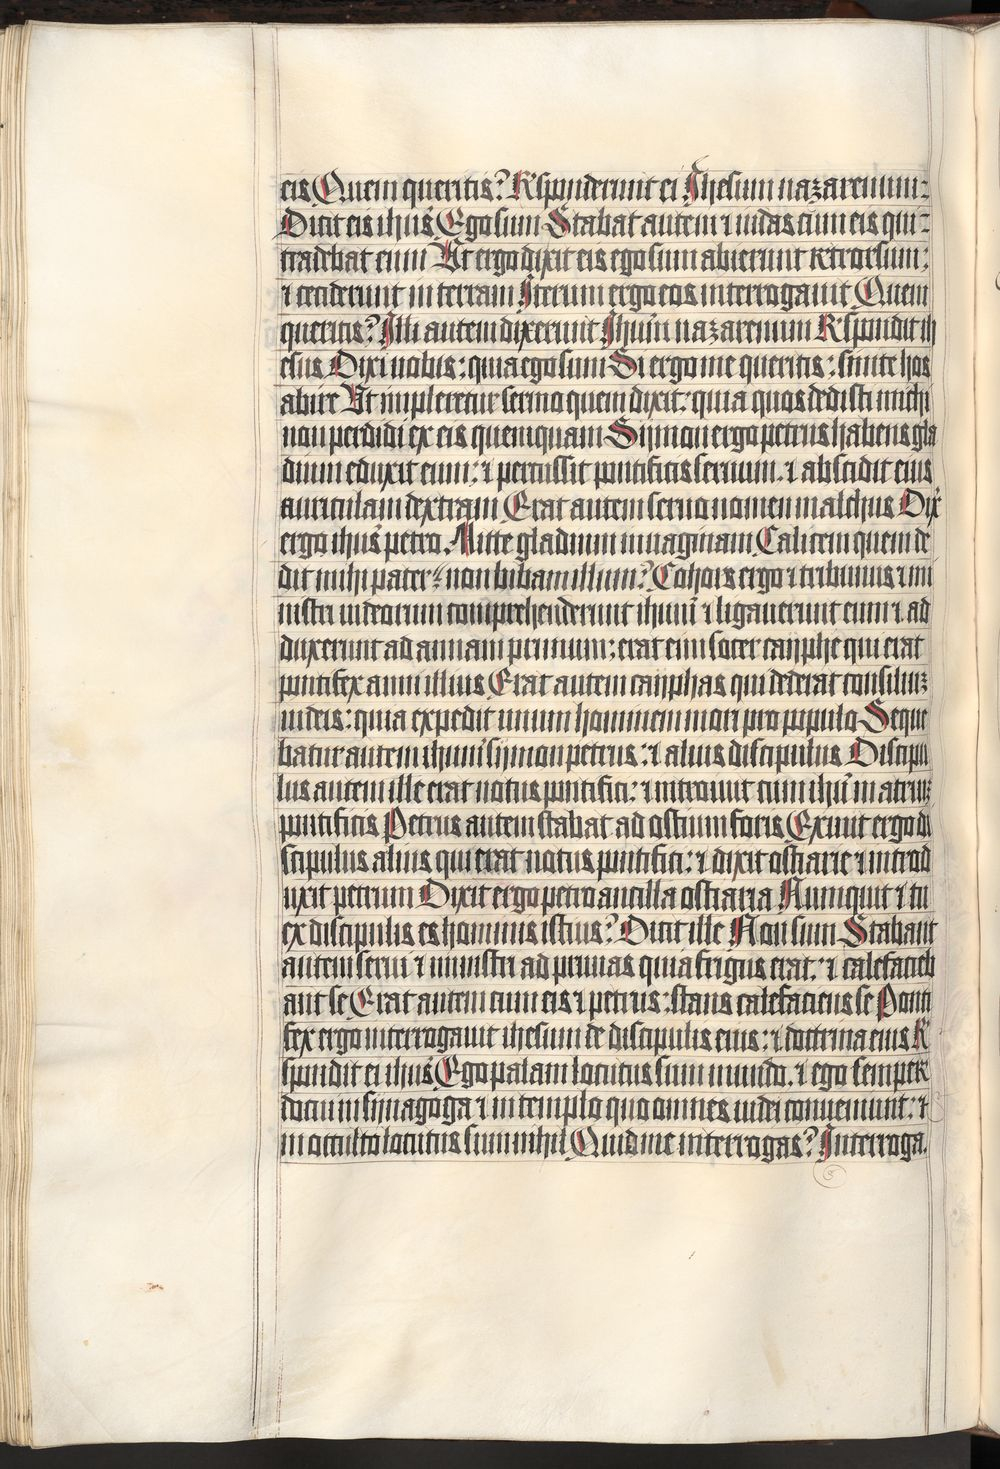 eis Quem queritis? R'sponderunt ei Jhesum nazarenum:
Dicit eis ihus Ego sum Stabat autem ⁊ iudas cum eis qui
tradebat eum Ut ergo dixit eis ego sum abierunt retrorsum:
⁊ ceciderunt in terram Iterum ergo eos interrogauit Quem
queritis? Illi autem dixerunt Jhum nazarenum R'spondit ih
esus Dixi uobis: quia ego sum Si ergo me queritis: sinite hos
abire Ut impleretur sermo quem dixit: quia quos dedisti michi
non perdidi ex eis quemquam Simon ergo petrus habens gla
dium eduxit eum: ⁊ percussit pontificis seruum. ⁊ abscidit eius
auriculam dextram Erat autem seruo nomen malchus Dix
ergo ihus petro. Mitte gladium in uaginam Calicem quem de
dit mihi pater: non bibam illum? Cohors ergo ⁊ tribunus ⁊ mi
nistri iudeorum comprehenderunt ihum ⁊ ligauerunt eum ⁊ ad
duxerunt ad annam primum: erat eim socer cayphe qui erat
pontifex anni illius Erat autem cayphas qui dederat consiliuz
iudeis: quia expedit unum hominem mori pro populo Seque
batur autem ihum symon petrus: ⁊ alius discipulus Discipu
lus autem ille erat notus pontifici: ⁊ introiuit cum ihu in atriuz
pontificis Petrus autem stabat ad ostium foris Exiuit ergo di
scipulus alius qui erat notus pontifici: ⁊ dixit ostiarie ⁊ introd
uxit petrum Dixit ergo petro ancilla ostiaria Numquit ⁊ tu
ex discipulis es hominis istius? Dicit ille Non sum Stabant
autem serui ⁊ ministri ad prunas quia frigus erat: ⁊ calefacieb
ant se Erat autem cum eis ⁊ petrus: stans calefaciens se Ponti
fex ergo interrogauit ihesum de discipulis eius: ⁊ doctrina eius R'
spondit ei ihus Ego palam locutus sum mundo. ⁊ ego semper
docui in synagoga ⁊ in templo quo omnes iudei conueniunt: ⁊
in occulto locutus sum nihil Quid me interrogas? Interroga.